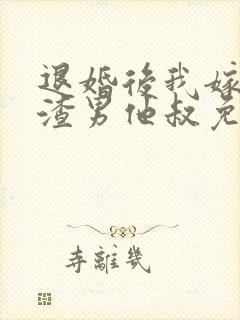 退婚後我嫁
渣男他叔免
寺離幾